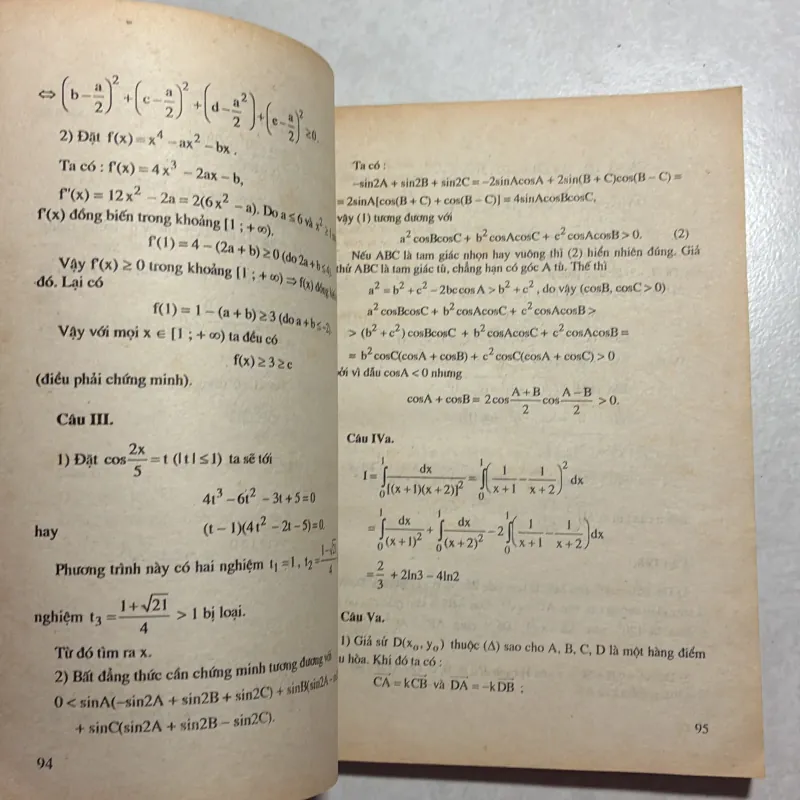 ⇔ (b − a/2)² + (c − a/2)² + (d − a²/2) + (e − a/2)² ≥ 0.
2) Đặt f(x) = x⁴ − ax² − bx .
Ta có : f'(x) = 4x³ − 2ax − b,
f''(x) = 12x² − 2a = 2(6x² − a). Do a ≤ 6 và x² ≥ 1
f'(x) đồng biến trong khoảng [1 ; + ∞).
f'(1) = 4 − (2a + b) ≥ 0 (do 2a + b ≤ 4).
Vậy f'(x) ≥ 0 trong khoảng [1 ; + ∞) ⇒ f(x) đồng
đó. Lại có
f(1) = 1 − (a + b) ≥ 3 (do a + b ≤ −2).
Vậy với mọi x ∈ [1 ; + ∞) ta đều có
f(x) ≥ 3 ≥ c
(điều phải chứng minh).
Câu III.
1) Đặt cos 2x/5 = t (|t| ≤ 1) ta sẽ tới
4t³ − 6t² − 3t + 5 = 0
hay (t − 1)(4t² − 2t − 5) = 0.
Phương trình này có hai nghiệm t₁ = 1, t₂ = (1−√21)/4
nghiệm t₃ = (1 + √21)/4 > 1 bị loại.
Từ đó tìm ra x.
2) Bất đẳng thức cần chứng minh tương đương với
0 < sinA(−sin2A + sin2B + sin2C) + sinB(sin2A −
+ sinC(sin2A + sin2B − sin2C).
94
Ta có :
−sin2A + sin2B + sin2C = −2sinAcosA + 2sin(B + C)cos(B − C) =
= 2sinA[cos(B + C) + cos(B − C)] = 4sinAcosBcosC,
vậy (1) tương đương với
a²cosBcosC + b²cosAcosC + c²cosAcosB > 0. (2)
Nếu ABC là tam giác nhọn hay vuông thì (2) hiển nhiên đúng. Giả
thử ABC là tam giác tù, chẳng hạn có góc A tù. Thế thì
a² = b² + c² − 2bccosA > b² + c² , do vậy (cosB, cosC > 0)
a²cosBcosC + b²cosAcosC + c²cosAcosB >
> (b² + c²)cosBcosC + b²cosAcosC + c²cosAcosB =
= b²cosC(cosA + cosB) + c²cosC(cosA + cosC) > 0
ởi vì dẫu cosA < 0 nhưng
cosA + cosB = 2cos (A + B)/2 cos (A − B)/2 > 0.
Câu IVa.
I = ∫₀¹ dx/[(x + 1)(x + 2)]² = ∫₀¹ (1/(x + 1) − 1/(x + 2))² dx
= ∫₀¹ dx/(x + 1)² + ∫₀¹ dx/(x + 2)² − 2∫₀¹ (1/(x + 1) − 1/(x + 2))dx
= 2/3 + 2ln3 − 4ln2
Câu Va.
1) Giả sử D(x₀, y₀) thuộc (Δ) sao cho A, B, C, D là một hàng điểm
u hòa. Khi đó ta có :
CA = kCB và DA = −kDB ;
95